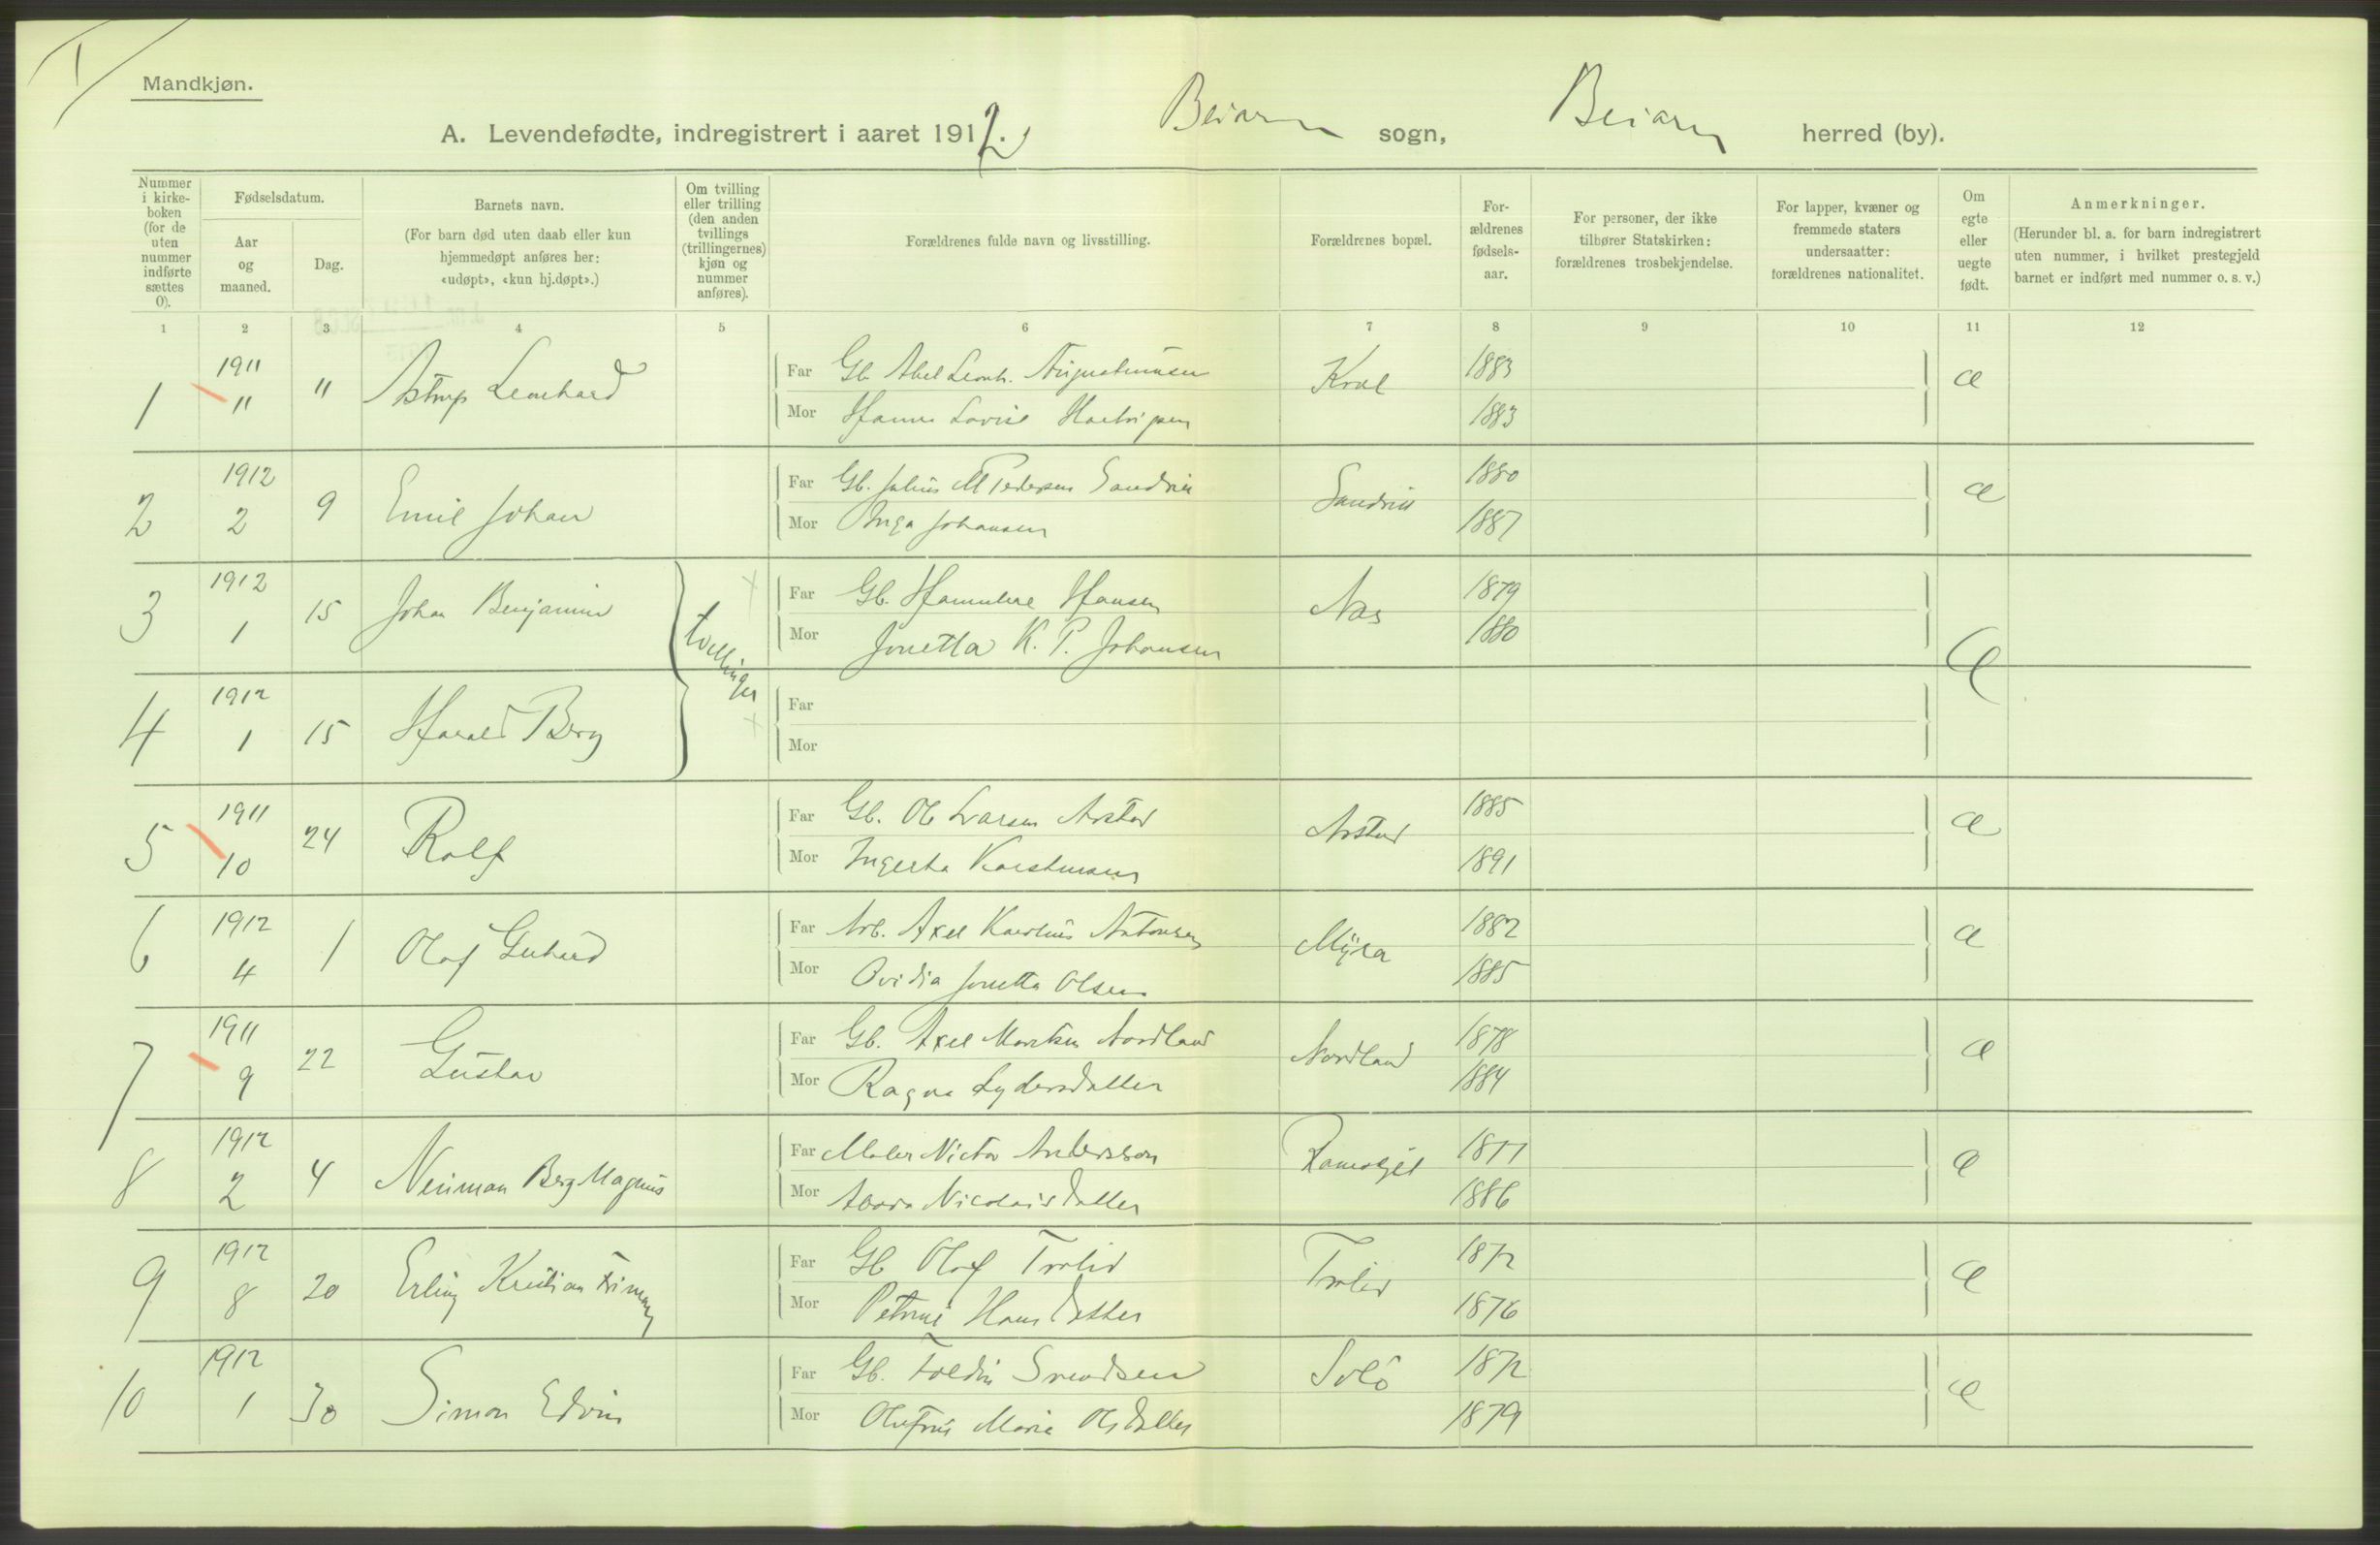 1
Mandkjøn.
A. Levendefødte, indregistrert i aaret 1912. Beiarn sogn, Beiarn herred (by).
Nummer i kirkeboken (for de uten nummer indførte sættes 0).
Fødselsdatum.
Aar og maaned.
Dag.
Barnets navn.
(For barn død uten daab eller kun hjemmedøpt anføres her: «udøpt», «kun hj.døpt».)
Om tvilling eller trilling (den anden tvillings (trillingernes) kjøn og nummer anføres).
Forældrenes fulde navn og livsstilling.
Forældrenes bopæl.
Forældrenes fødselsaar.
For personer, der ikke tilhører Statskirken: forældrenes trosbekjendelse.
For lapper, kvæner og fremmede staters undersaatter: forældrenes nationalitet.
Om egte eller uegte født.
Anmerkninger.
(Herunder bl. a. for barn indregistrert uten nummer, i hvilket prestegjeld barnet er indført med nummer o. s. v.)
1 2 3 4 5 6 7 8 9 10 11 12
1 1911 11 11 Astrup Leonhard Far Gb. Abel Leonh. Augustinusen 1883 æ
Mor Hanna Lovise Hartvigsen 1883
2 1912 2 9 Emil Johan Far Gb. Julius M Pedersen Sandvik Sandvik 1880 æ
Mor Inga Johansen 1887
3 1912 1 15 Johan Benjamin tvillinger Far Gb. Hansen Nes 1879 Æ
Mor Jonetta K. P. Johansen 1880
4 1912 1 15 Harald Berg Far
Mor
5 1911 10 24 Rolf Far Gb. Ole Larsen Arstad Arstad 1885 æ
Mor Ingerta 1891
6 1912 4 1 Olaf Far Arb. Axel Karolius Antonsen Myra 1882 æ
Mor Ovidia Jonetta Olsen 1885
7 1911 9 22 Gustav Far Gb. Axel Nordland Nordland 1878 æ
Mor Ragna Lydersdatter 1884
8 1912 2 4 Neuman Berg Magnus Far Maler Victor Andersson 1877 æ
Mor Nicolaisdatter 1886
9 1912 8 20 Erling Kristian Far Gb Olaf Trolid Trolid 1872 æ
Mor Petrine Hansdatter 1876
10 1912 1 30 Simon Edvin Far Gb. Svendsen 1872 æ
Mor Olufine Maria Olsdatter 1879